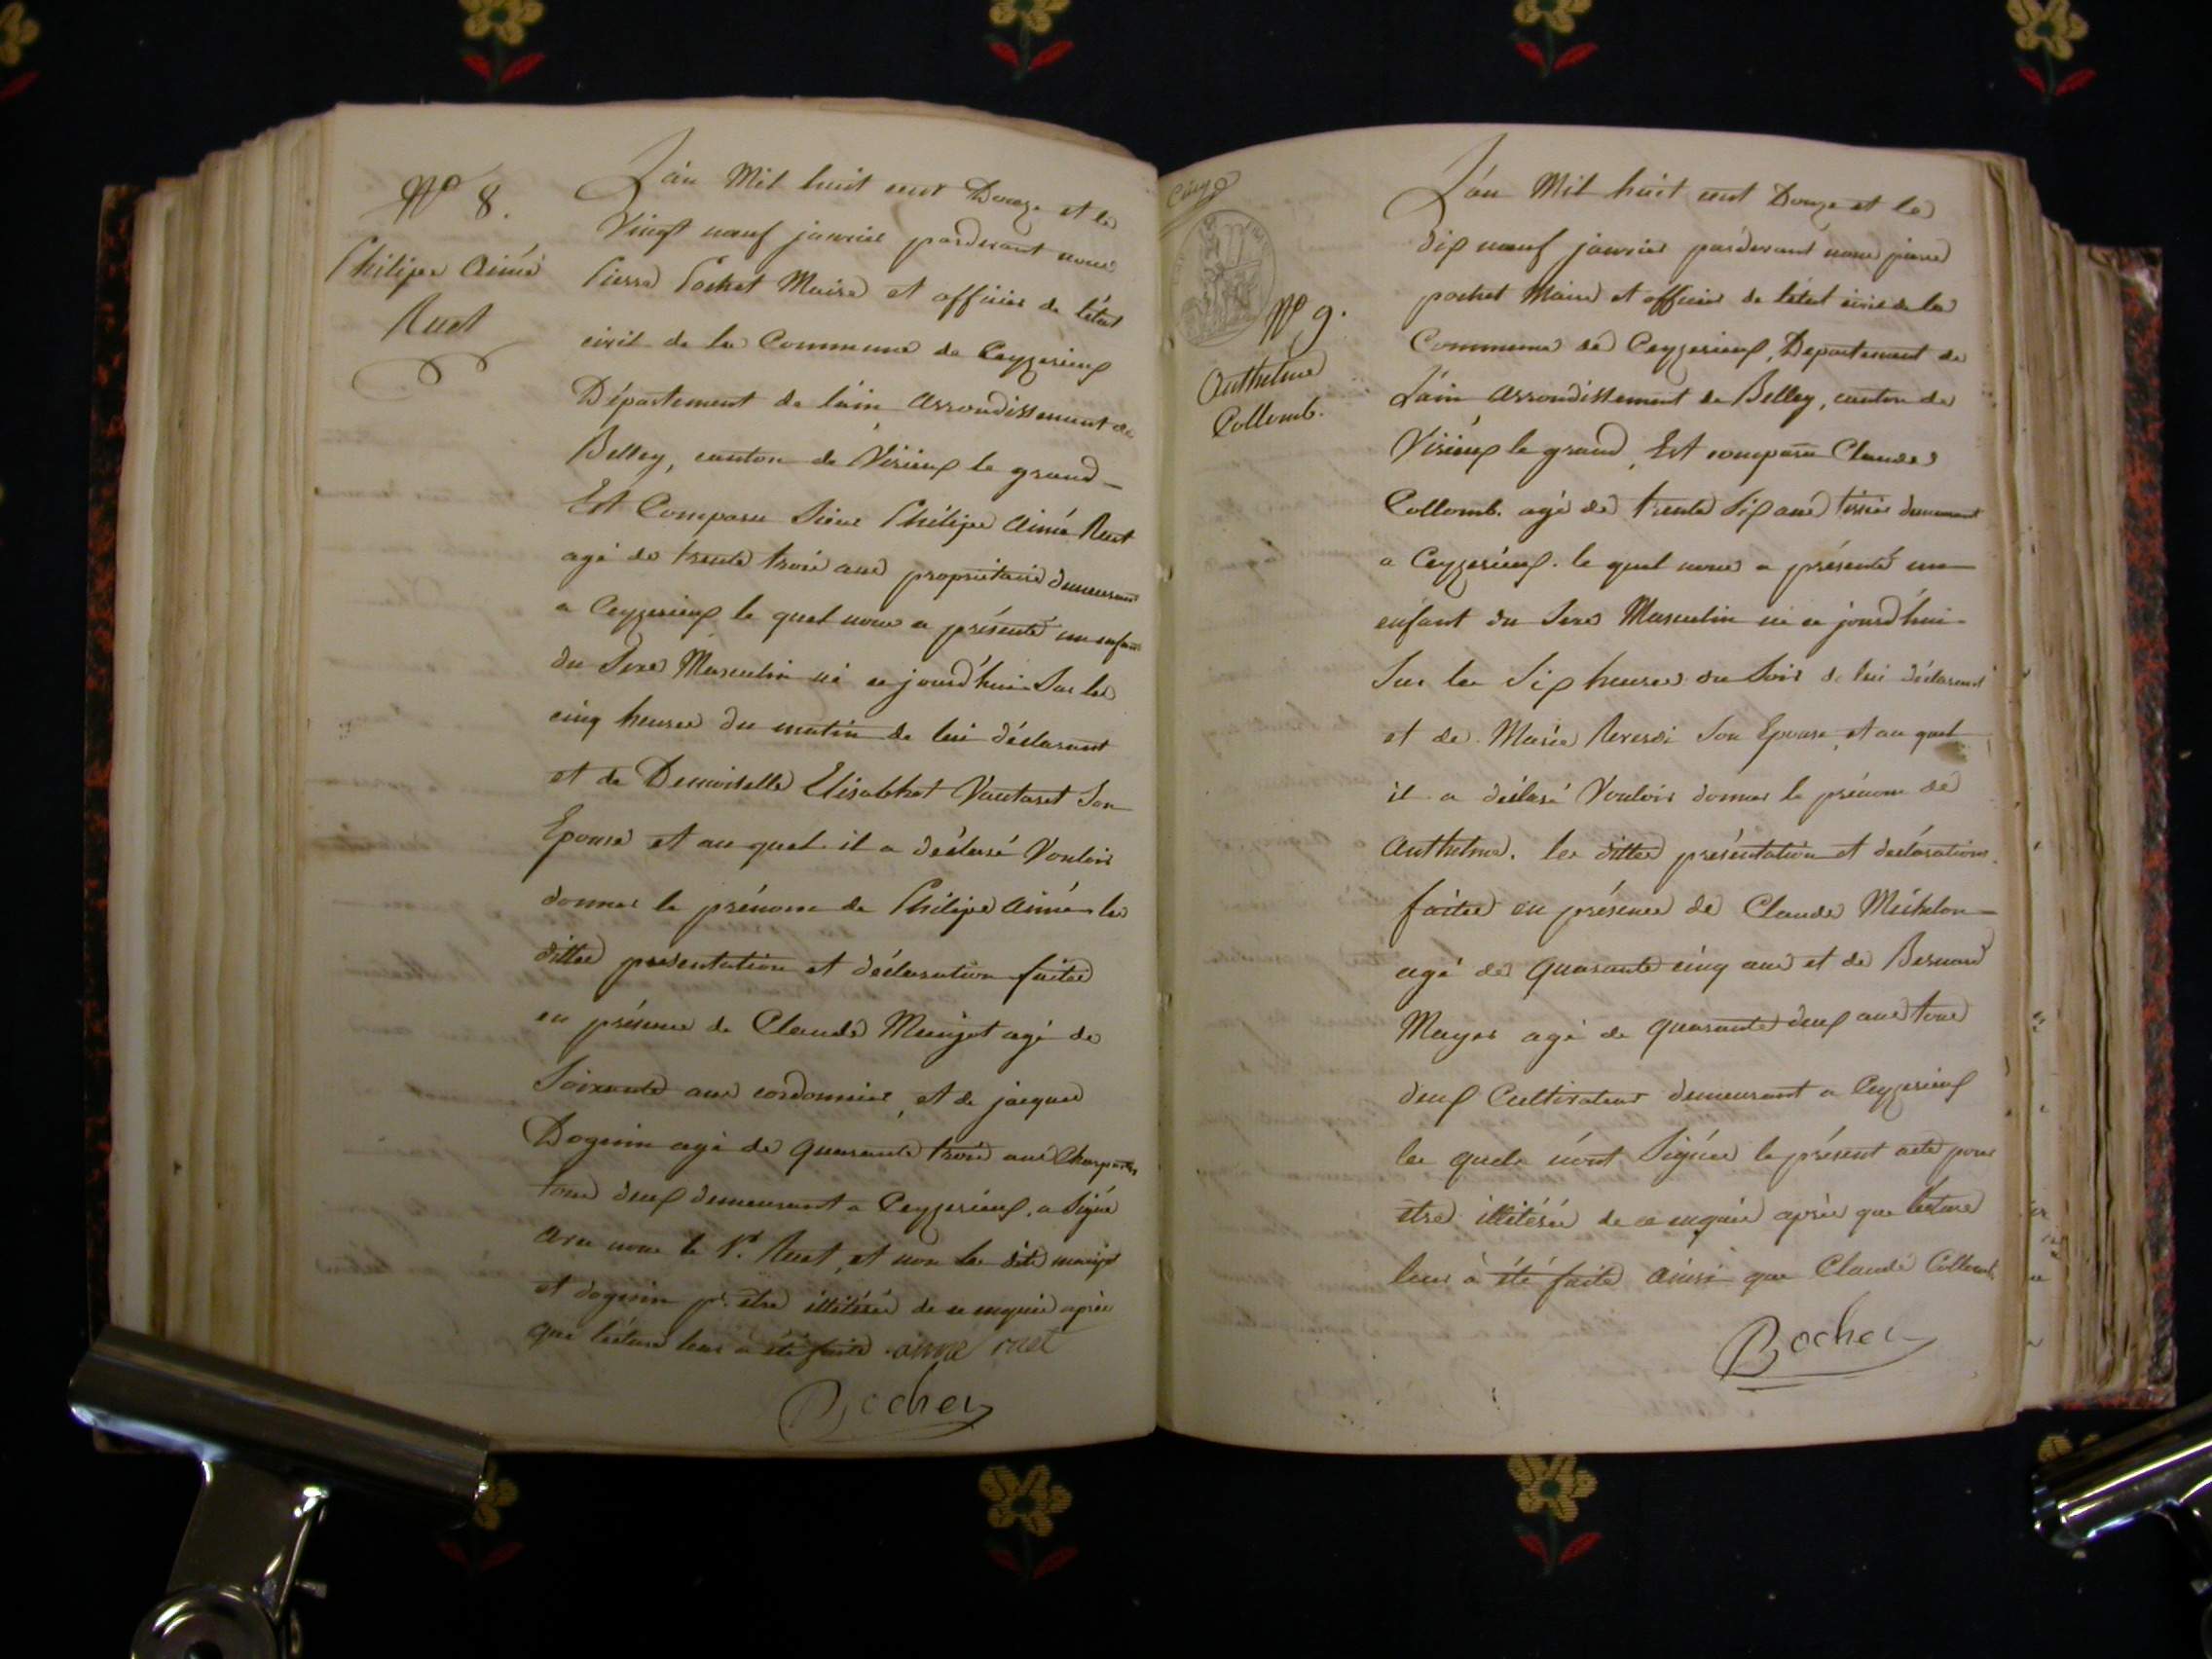 N° 8.
Philipe Aimé
Ruet
L'an Mil huit cent Douze et le
Vingt neuf janvier pardevant nous
Pierre Pochet Maire et officier de l'état
civil de la Commune de Ceyzerieux
Département de l'ain arrondissement de
Belley, canton de Virieux le grand
Est Comparu Sieur Philipe Aimé Ruet
agé de trente trois ans propriétaire demeurant
a Ceyzerieux le quel nous a présenté un enfant
du Sexe Masculin né ce jourd'hui Sur les
cinq heures du matin de lui déclarant
et de Demoiselle Elisabhet Vautaret Son
Epouse et au quel il a déclaré Vouloir
donner le prénom de Philipe Aimé les
dittes presentation et déclaration faites
en présence de Claude agé de
Soixante ans cordonnier, et de jacques
Dognin agé de quarante trois ans Charpentier
tous deux demeurant a Ceyzerieux, a Signé
avec nous le Sr. Ruet, et non les dits
et dognin pr. etre illitérés de ce enquis après
que lecture leur à été faite aimé ruet
Pochet
Cinq 9
N° 9.
Anthelme
Collomb.
L'an Mil huit cent Douze et le
dix neuf janvier pardevant nous pierre
pochet Maire et officier de l'état civil de la
Commune de Ceyzerieux, Departement de
L'ain arrondissement de Belley, canton de
Virieux le grand, Est comparu Claude
Collomb. agé de trente Six ans tissier demeurant
a Ceyzerieux. le quel nous a présenté un
enfant du Sexe Masculin né ce jourd'hui
Sur les Six heures du Soir de lui déclarant
et de Marie Reverdi Son Epouse, et au quel
il a déclaré Vouloir donner le prénom de
Anthelme. les dittes présentation et déclarations
faites en présence de Claude Michelon
agé de quarante cinq ans et de Bernard
Mayer agé de quarante deux ans tous
deux Cultivateur demeurant a Ceyzerieux
les quels n'ont Signés le présent acte pour
etre illitérés de ce enquis après que lecture
leur à été faite ainsi que Claude Collomb
Pochet